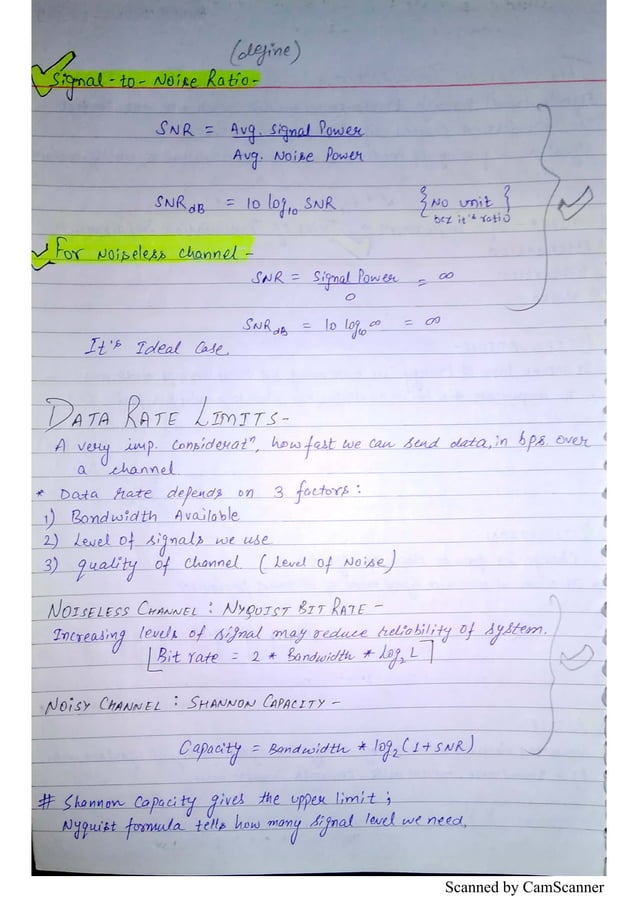 (define)
Signal-to-Noise Ratio-
SNR = Avg. Signal Power
Avg. Noise Power
SNR dB = 10 log10 SNR {No unit}
bcz it's ratio
For Noiseless channel-
SNR = Signal Power = ∞
0
SNR dB = 10 log10 ∞ = ∞
It's Ideal Case.
DATA RATE LIMITS-
A very imp. consideratn, how fast we can send data, in bps. over
a channel
* Data rate depends on 3 factors:
1) Bandwidth Available
2) Level of signals we use
3) quality of channel. (Level of Noise)
NOISELESS CHANNEL: NYQUIST BIT RATE-
Increasing levels of signal may reduce reliability of system.
[Bit rate = 2 * Bandwidth * Log2 L]
NOISY CHANNEL: SHANNON CAPACITY-
Capacity = Bandwidth * log2 (1+SNR)
# Shannon Capacity gives the upper limit;
Nyquist formula tells how many signal level we need.
Scanned by CamScanner